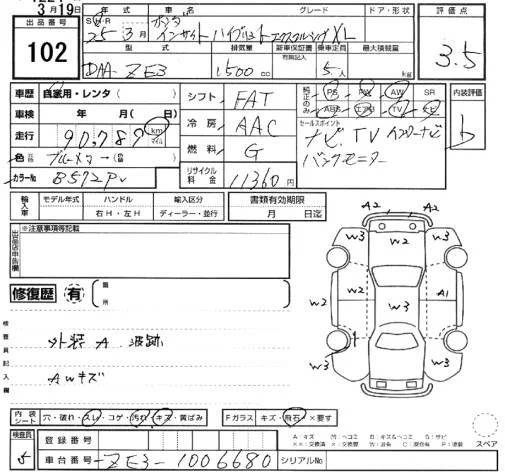 3月19日
出品番号 102
年式 グレード ドア・形状 評価点
S H・R 25 3月 ホンダ インサイト ハイブリット エクスクルーシブ XL
3.5
型式 排気量 新車保証書 有無記入 乗車定員 最大積載量
DAA-ZE3 1500 cc 5人 kg
車歴 自家用・レンタ( )
車検 年 月( 日)
走行 90,787 km マイル
色 元色 ブルーメタ →(前色 )
カラーNo B572Pv
シフト FAT
冷房 AAC
燃料 G
リサイクル料金 11360円
純正のみ PS PW AW SR
ABS エアB TV ナビ
セールスポイント
ナビ TV
バックモニター
内装評価 b
輸入車 モデル年式 ハンドル 輸入区分 書類有効期限
右H・左H ディーラー・並行 月 日迄
出品店申告欄 ※注意事項等記載
修復歴 有 箇所
検査員記入欄
外装 A
AWキズ
A2 A2
W3 W2 W3
W2 W3 A1
W2
W3
内装シート 穴・破れ・スレ・コゲ・汚れ・キズ・黄ばみ Fガラス キズ・飛石・×要す
検査員 5
登録番号
車台番号 ZE3-1006680 シリアルNo
A:キズ
スペア